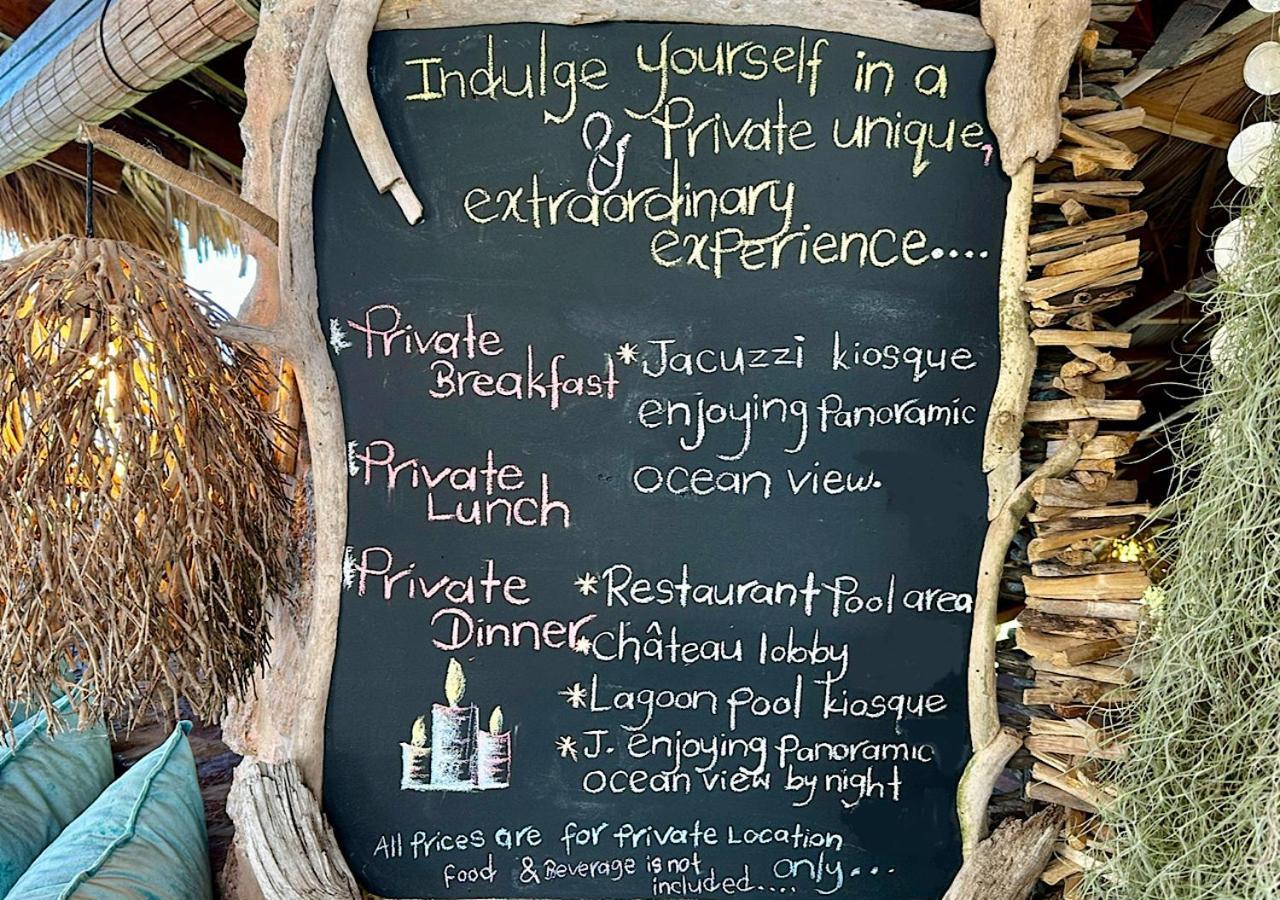 Indulge yourself in a
& Private unique,
extraordinary
experience....
*Private
Breakfast
*Jacuzzi kiosque
enjoying Panoramic
ocean view.
*Private
Lunch
*Private
Dinner
*Restaurant Pool area
*Château lobby
*Lagoon pool kiosque
*J. enjoying Panoramic
ocean view by night
All Prices are for Private Location
only...
food & Beverage is not
included....